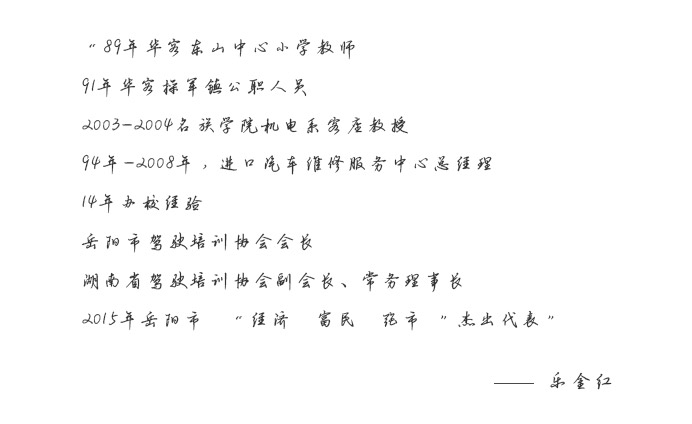 “89年华容东山中心小学教师
91年华容操军镇公职人员
2003-2004名族学院机电系客座教授
94年-2008年，进口汽车维修服务中心总经理
14年办校经验
岳阳市驾驶培训协会会长
湖南省驾驶培训协会副会长、常务理事长
2015年岳阳市 “经济 富民 强市 ”杰出代表”
—— 乐金红